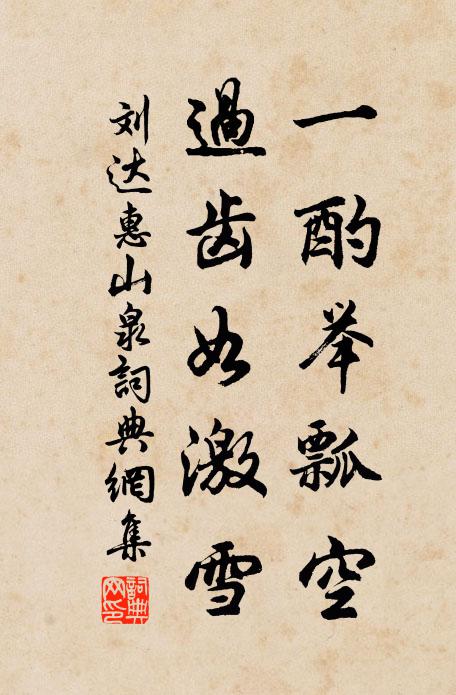 一酌举瓢空
過齿如激雪
刘达惠山泉詞典網集
詞典网印